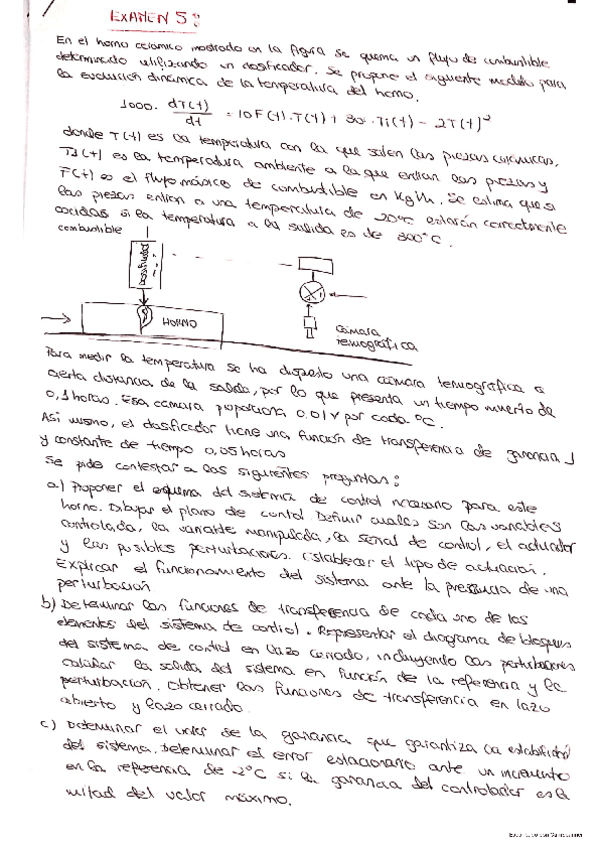 EXAMEN 5:
En el horno cerámico mostrado en la figura se quema un flujo de combustible
determinado utilizando un dosificador. Se propone el siguiente modelo para
la evolución dinámica de la temperatura del horno.
1000. dT(t)/dt = 10F(t).T(t) + 30.Ti(t) - 2T(t)²
donde T(t) es la temperatura con la que salen las piezas cerámicas,
es la temperatura ambiente a la que entran las piezas y
F(t) es el flujo másico de combustible en Kg/h. Se estima que si
las piezas entran a una temperatura de 20ºC estarán correctamente
cocidas si la temperatura a la salida es de 300ºC.
combustible
Dosificador
HORNO
cámara
termográfica
Para medir la temperatura se ha dispuesto una cámara termográfica a
cierta distancia de la salida, por lo que presenta un tiempo muerto de
0,1 horas. Esa cámara proporciona 0,01V por cada ºC.
Asi mismo, el dosificador tiene una función de transferencia de ganancia 1
y constante de tiempo 0,05 horas
Se pide contestar a las siguientes preguntas:
a) Proponer el esquema del sistema de control necesario para este
horno. Dibujar el plano de control Definir cuales son las variables
controlada, la variable manipulada, la señal de control, el actuador
y las posibles perturbaciones. Establecer el tipo de actuación.
Explicar el funcionamiento del sistema ante la presencia de una
perturbación
b) Determinar las funciones de transferencia de cada uno de los
elementos del sistema de control. Representar el diagrama de bloques
del sistema de control en lazo cerrado, incluyendo las perturbaciones
calcular la salida del sistema en función de la referencia y la
perturbación. Obtener las funciones de transferencia en lazo
abierto y lazo cerrado.
c) Determinar el valor de la ganancia que garantiza la estabilidad
del sistema. Determinar el error estacionario ante un incremento
en la referencia de -2ºC si la ganancia del controlador es la
mitad del valor máximo.